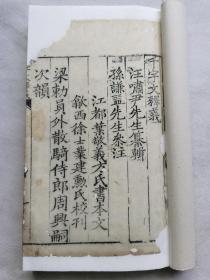 千字文釋義
汪嘯尹先生纂輯
孫謙益先生參注
江都葉敬義方氏書本文
歙西徐士業建勳氏校刋
梁勅員外散騎侍郎周興嗣
次韻